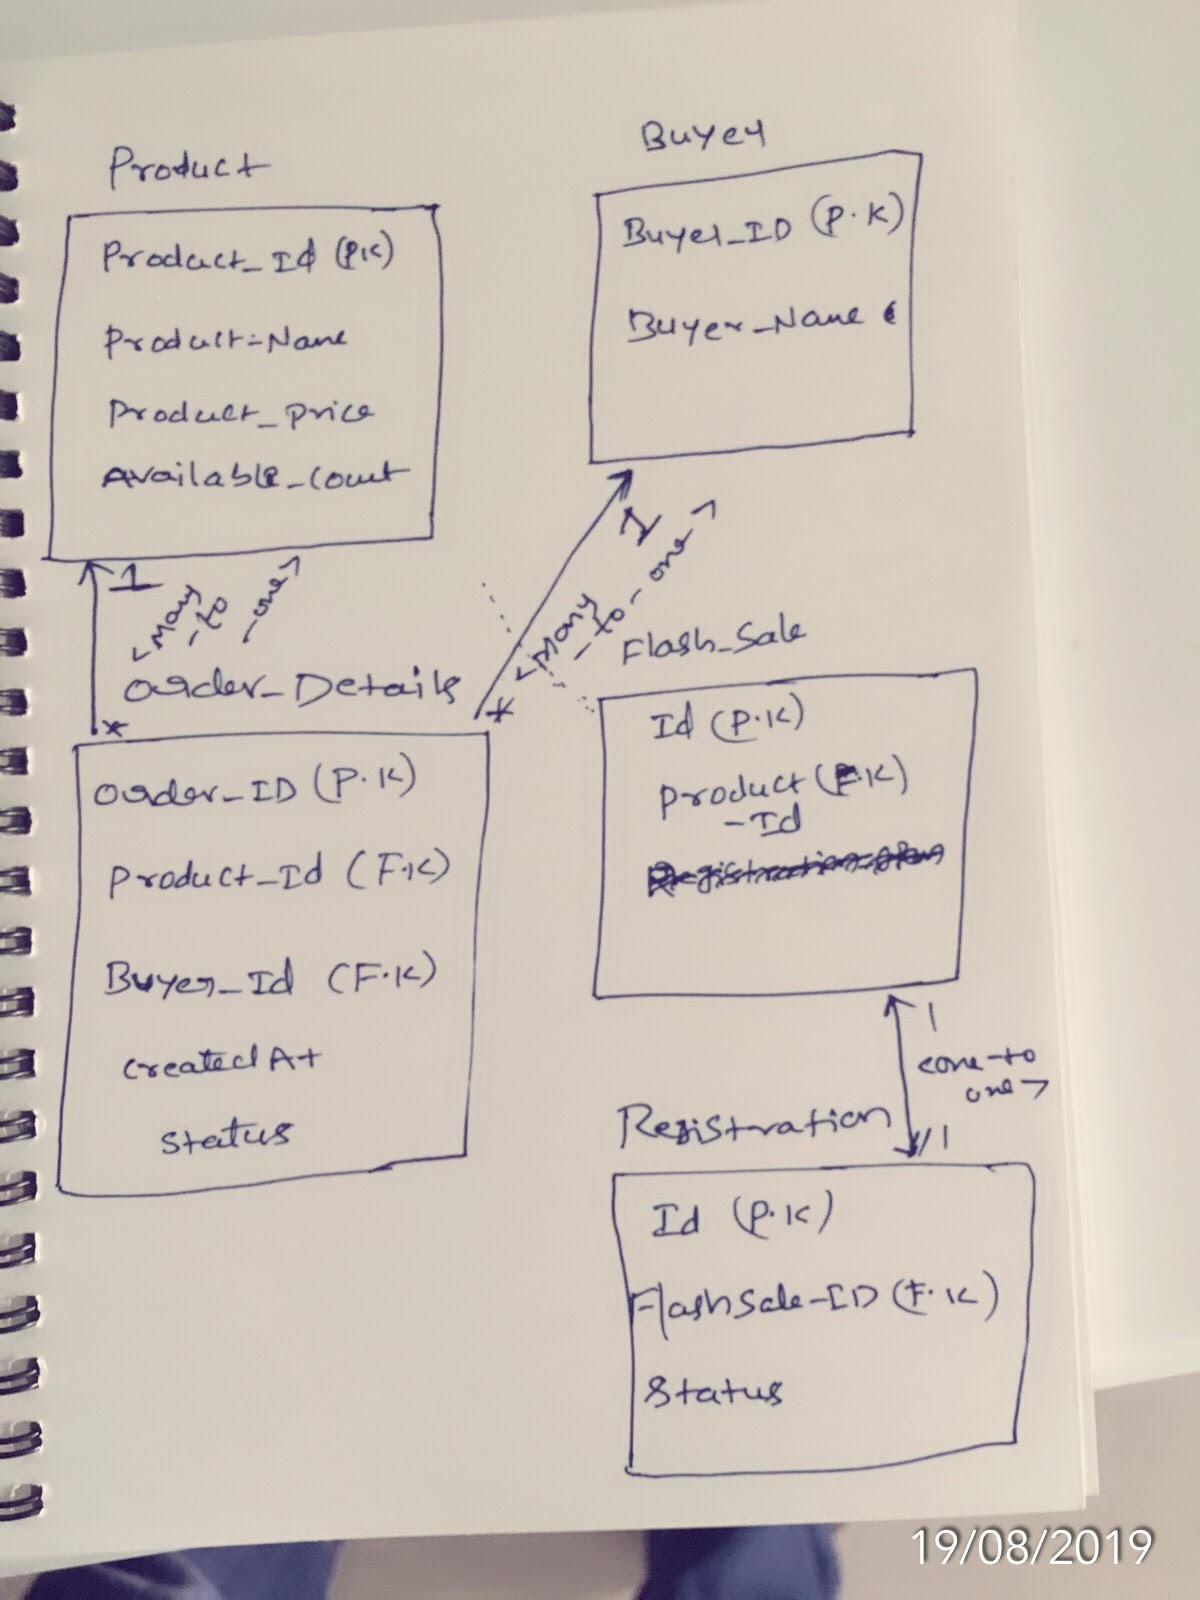 Product
Product_Id (PK)
Product_Name
Product_price
Available_count
1
<Many
-to
-one>
*
Buyer
Buyer_ID (P.K)
Buyer_Name
1
<Many
-to-one>
*
Order_Details
Order_ID (P.K)
Product_Id (F.K)
Buyer_Id (F.K)
createdAt
Status
Flash_Sale
Id (P.K)
Product (F.K)
-Id
1
<one-to
one>
1
Registration
Id (P.K)
FlashSale-ID (F.K)
Status
19/08/2019